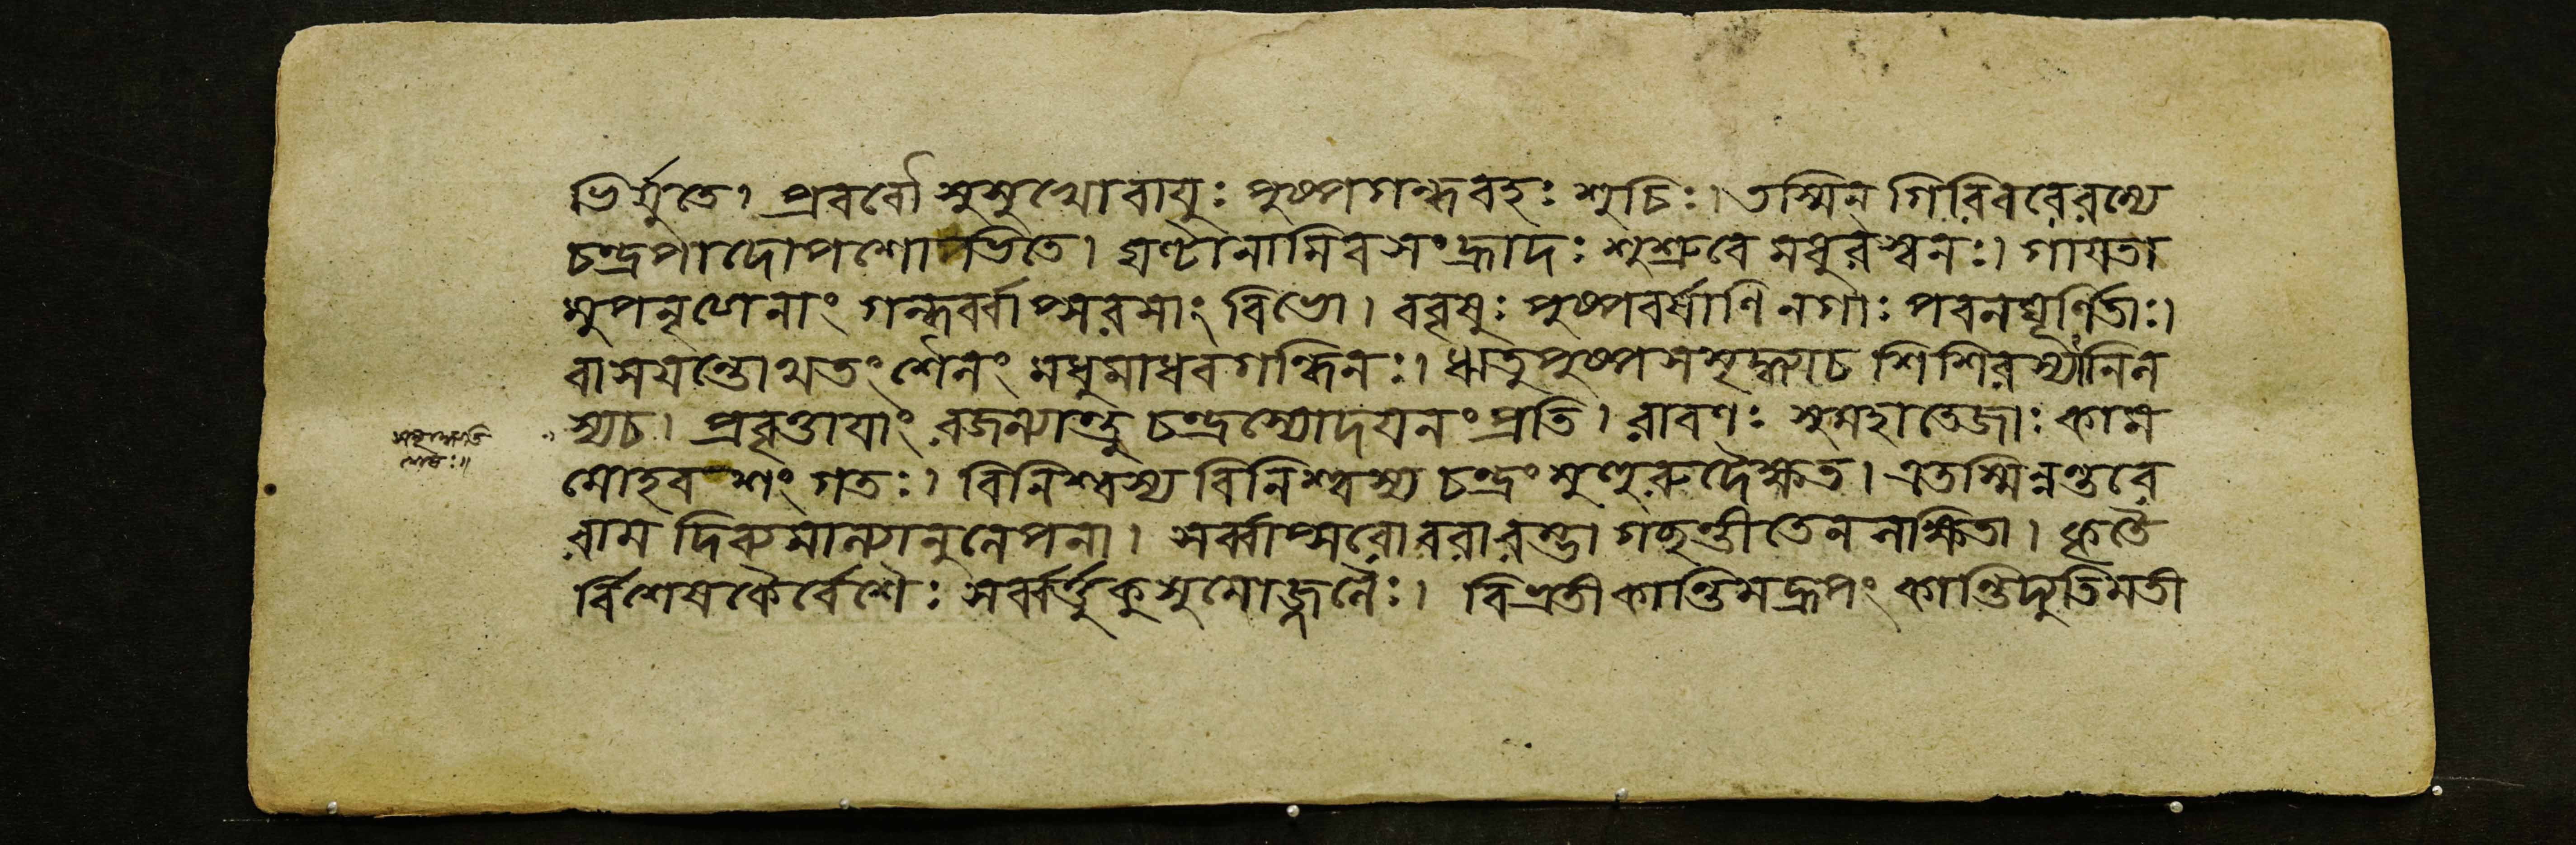 ভির্য্যুতে। প্রববৌ সুসুখো বায়ুঃ পুষ্পগন্ধবহঃ শুচিঃ। তস্মিন্ গিরিবরে রম্যে
চন্দ্রপাদোপশোভিতে। ঘণ্টানামিব সংহ্রাদঃ শুশ্রুবে মধুরস্বনঃ। গায়তা
মুপনৃত্যেনাং গন্ধর্ব্বাপ্সরসাং বিভো। ববৃষুঃ পুষ্পবর্ষাণি নগাঃ পবনঘূর্ণিতাঃ।
বাসয়ন্তো মধুমাধবগন্ধিনঃ। ঋতুপুষ্পসমৃদ্ধ্যাচ শিশিরস্যানিল
স্যচ। প্রবৃত্তায়াং রজন্যান্তু চন্দ্রস্যোদয়নং প্রতি। রাবণঃ সুমহাতেজাঃ কাম
মোহবশং গতঃ। বিনিশ্বস্য বিনিশ্বস্য চন্দ্রং মুহুরুদৈক্ষত। এতস্মিন্নন্তরে
রাম দিব্যমাল্যানুলেপনা। সর্ব্বাপ্সরোবরা রম্ভা গচ্ছন্তী তেন লক্ষিতা। কৃতৈ
র্বিশেষকৈর্বেশৈঃ সর্ব্বর্ত্তুকুসুমোজ্জ্বলৈঃ। বিভ্রতী কান্তিমদ্রূপং কান্তিদ্যুতিমতী